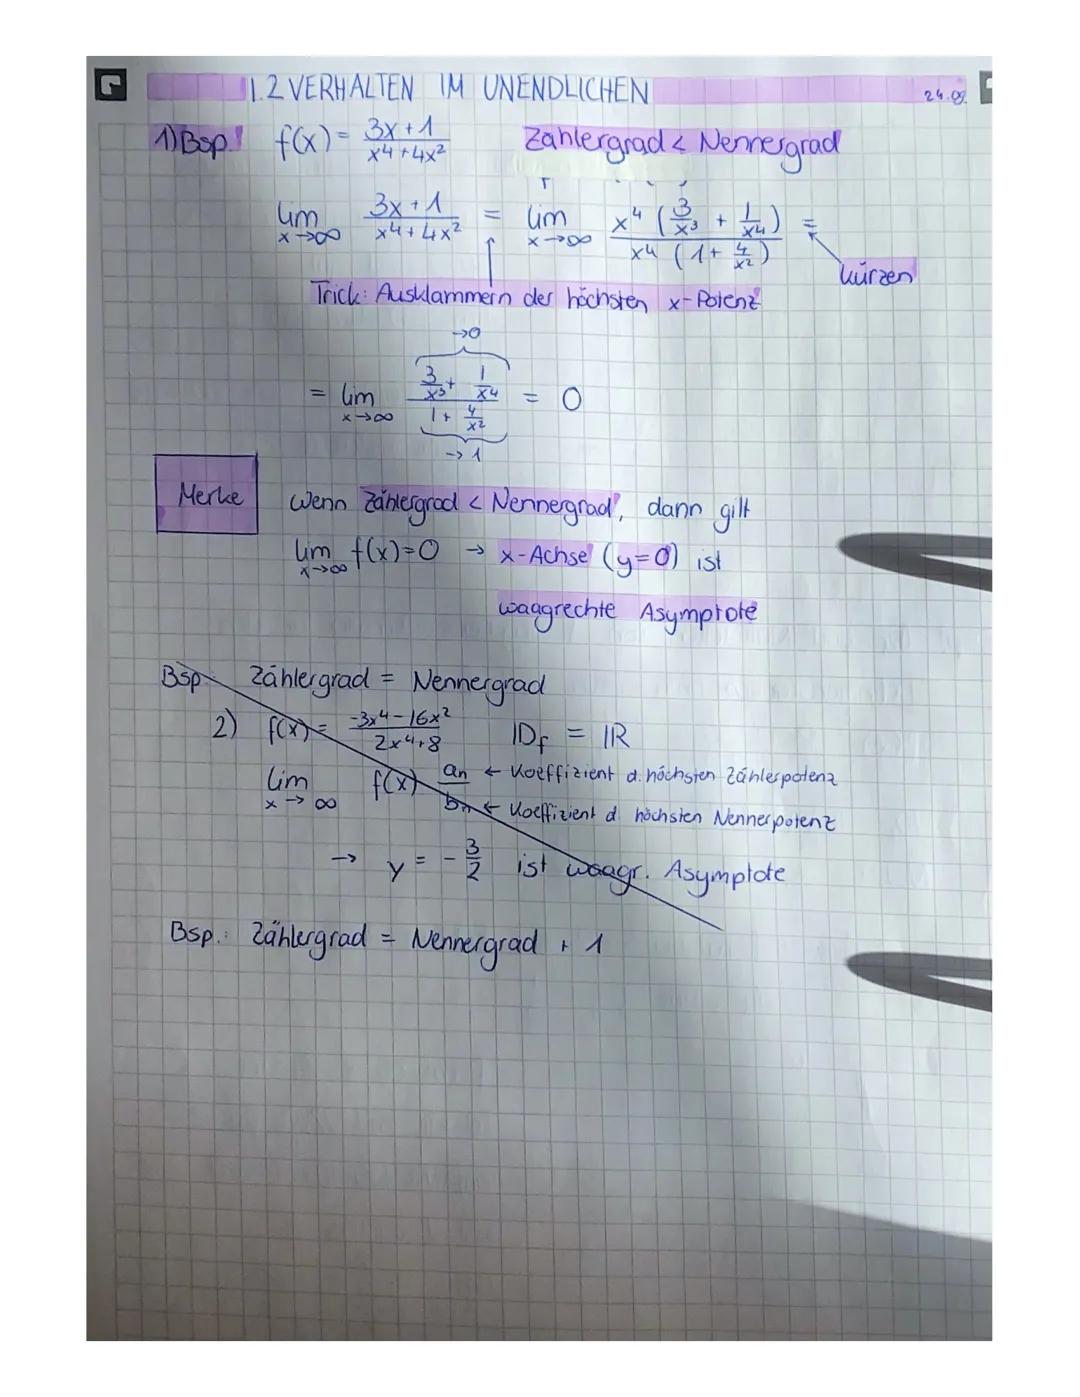 1.2 VERHALTEN IM UNENDLICHEN
24.09.
1) Bsp. f(x) = (3x+1)/(x⁴+4x²) Zählergrad < Nennergrad
lim x→∞ (3x+1)/(x⁴+4x²) = lim x→∞ (x⁴(3/x³ + 1/x⁴))/(x⁴(1+4/x²)) =
kürzen
Trick: Ausklammern der höchsten x-Potenz
→0
= lim x→∞ (3/x³ + 1/x⁴)/(1 + 4/x²) = 0
→1
Merke wenn Zählergrad < Nennergrad, dann gilt
lim x→∞ f(x)=0 → x-Achse (y=0) ist
waagrechte Asymptote
Bsp. Zählergrad = Nennergrad
2) f(x) = (-3x⁴-16x²)/(2x⁴+8) ID_f = IR
lim x→∞ f(x) an ← Koeffizient d. höchsten Zählerpotenz
bn ← Koeffizient d. höchsten Nennerpotenz
→ y = -3/2 ist waagr. Asymptote
Bsp.: Zählergrad = Nennergrad + 1